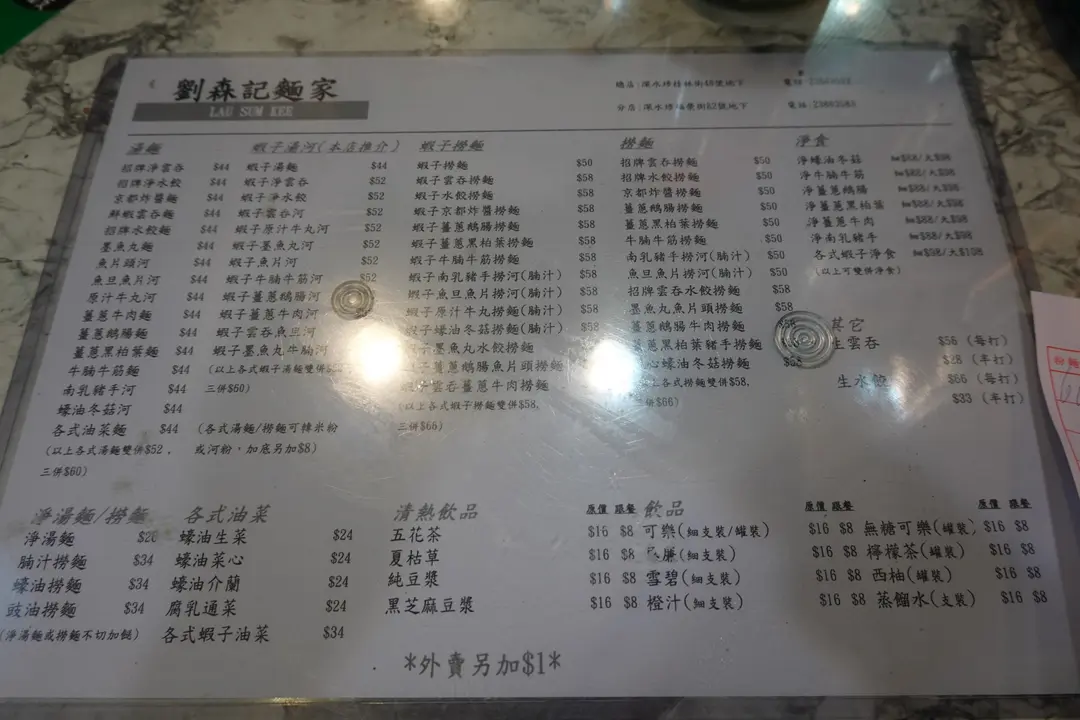 劉森記麵家
LAU SUM KEE
總店:深水埗桂林街48號地下
電話:
分店:深水埗福榮街82號地下
電話:23863583
湯麵
招牌淨雲吞 $44
招牌淨水餃 $44
京都炸醬麵 $44
鮮蝦雲吞麵 $44
招牌水餃麵 $44
墨魚丸麵 $44
魚片頭河 $44
魚旦魚片河 $44
原汁牛丸河 $44
薑蔥牛肉麵 $44
薑蔥鵝腸麵 $44
薑蔥黑柏葉麵 $44
牛腩牛筋麵 $44
南乳豬手河 $44
蠔油冬菇河 $44
各式油菜麵 $44
(以上各式湯麵雙併$52,
三併$60)
蝦子湯河(本店推介)
蝦子湯麵 $44
蝦子淨雲吞 $52
蝦子淨水餃 $52
蝦子雲吞河 $52
蝦子原汁牛丸河 $52
蝦子墨魚丸河 $52
蝦子魚片河 $52
蝦子牛腩牛筋河 $52
蝦子薑蔥鵝腸河
蝦子薑蔥牛肉河
蝦子雲吞魚旦河
蝦子墨魚丸牛腩河
(以上各式蝦子湯麵雙併
三併$60)
(各式湯麵/撈麵可轉米粉
或河粉,加底另加$8)
蝦子撈麵
蝦子撈麵 $50
蝦子雲吞撈麵 $58
蝦子水餃撈麵 $58
蝦子京都炸醬撈麵 $58
蝦子薑蔥鵝腸撈麵 $58
蝦子薑蔥黑柏葉撈麵 $58
蝦子牛腩牛筋撈麵 $58
蝦子南乳豬手撈河(腩汁) $58
蝦子魚旦魚片撈河(腩汁) $58
蝦子原汁牛丸撈河(腩汁) $58
蝦子蠔油冬菇撈麵(腩汁) $58
蝦子墨魚丸水餃撈麵
子薑蔥鵝腸魚片頭撈麵
蝦子雲吞薑蔥牛肉撈麵
(以上各式蝦子撈麵雙併$58,
三併$66)
撈麵
招牌雲吞撈麵 $50
招牌水餃撈麵 $50
京都炸醬撈麵 $50
薑蔥鵝腸撈麵 $50
薑蔥黑柏葉撈麵 $50
牛腩牛筋撈麵 $50
南乳豬手撈河(腩汁) $50
魚旦魚片撈河(腩汁) $50
招牌雲吞水餃撈麵 $58
墨魚丸魚片頭撈麵 $58
薑蔥鵝腸牛肉撈麵 $58
薑蔥黑柏葉豬手撈麵 $58
心蠔油冬菇撈麵
上各式撈麵雙併$58,
三併$66)
淨食
淨蠔油冬菇 $88/大$98
淨牛腩牛筋 $88/大$98
淨薑蔥鵝腸 $88/大$98
淨薑蔥黑柏葉 $88/大$98
淨薑蔥牛肉 $88/大$98
淨南乳豬手 $88/大$98
各式蝦子淨食 $98/大$108
(以上可雙併淨食)
其它
生雲吞 $56 (每打)
$28 (半打)
生水餃 $66 (每打)
$33 (半打)
淨湯麵/撈麵
淨湯麵 $26
腩汁撈麵 $34
蠔油撈麵 $34
豉油撈麵 $34
(淨湯麵或撈麵不切加餸)
各式油菜
蠔油生菜 $24
蠔油菜心 $24
蠔油介蘭 $24
腐乳通菜 $24
各式蝦子油菜 $34
清熱飲品 原價 跟餐
五花茶 $16 $8
夏枯草 $16 $8
純豆漿 $16 $8
黑芝麻豆漿 $16 $8
飲品 原價 跟餐
可樂(細支裝/罐裝) $16 $8
(細支裝) $16 $8
雪碧(細支裝) $16 $8
橙汁(細支裝) $16 $8
原價 跟餐
無糖可樂(罐裝) $16 $8
檸檬茶(罐裝) $16 $8
西柚(罐裝) $16 $8
蒸餾水(支裝) $16 $8
*外賣另加$1*